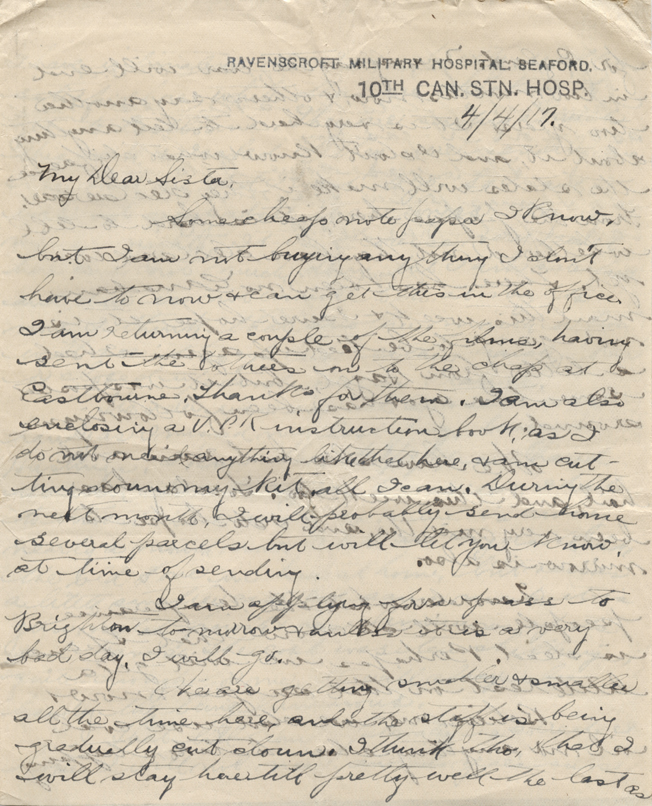 RAVENSCROFT MILITARY HOSPITAL, SEAFORD.
10TH CAN. STN. HOSP.
4/4/17.
My Dear Sista,
Some cheap note papa I know,
but I am not buying any thing I don't
have to now & can get this in the office.
I am returning a couple of the films, having
sent the others on to the chap at
Eastbourne, thanks for them. I am also
enclosing a V.P.K instruction book, as I
do not need anything like that here, & am cut-
ting down my kit all I can. During the
next month, I will probably send home
several parcels but will let you know
at time of sending.
I am applying for a pass to
Brighton to-morrow & unless it is a very
bad day, I will go.
We are getting smaller & smaller
all the time here and the staff is being
gradually cut down. I think tho, that I
will stay here till pretty well the last as